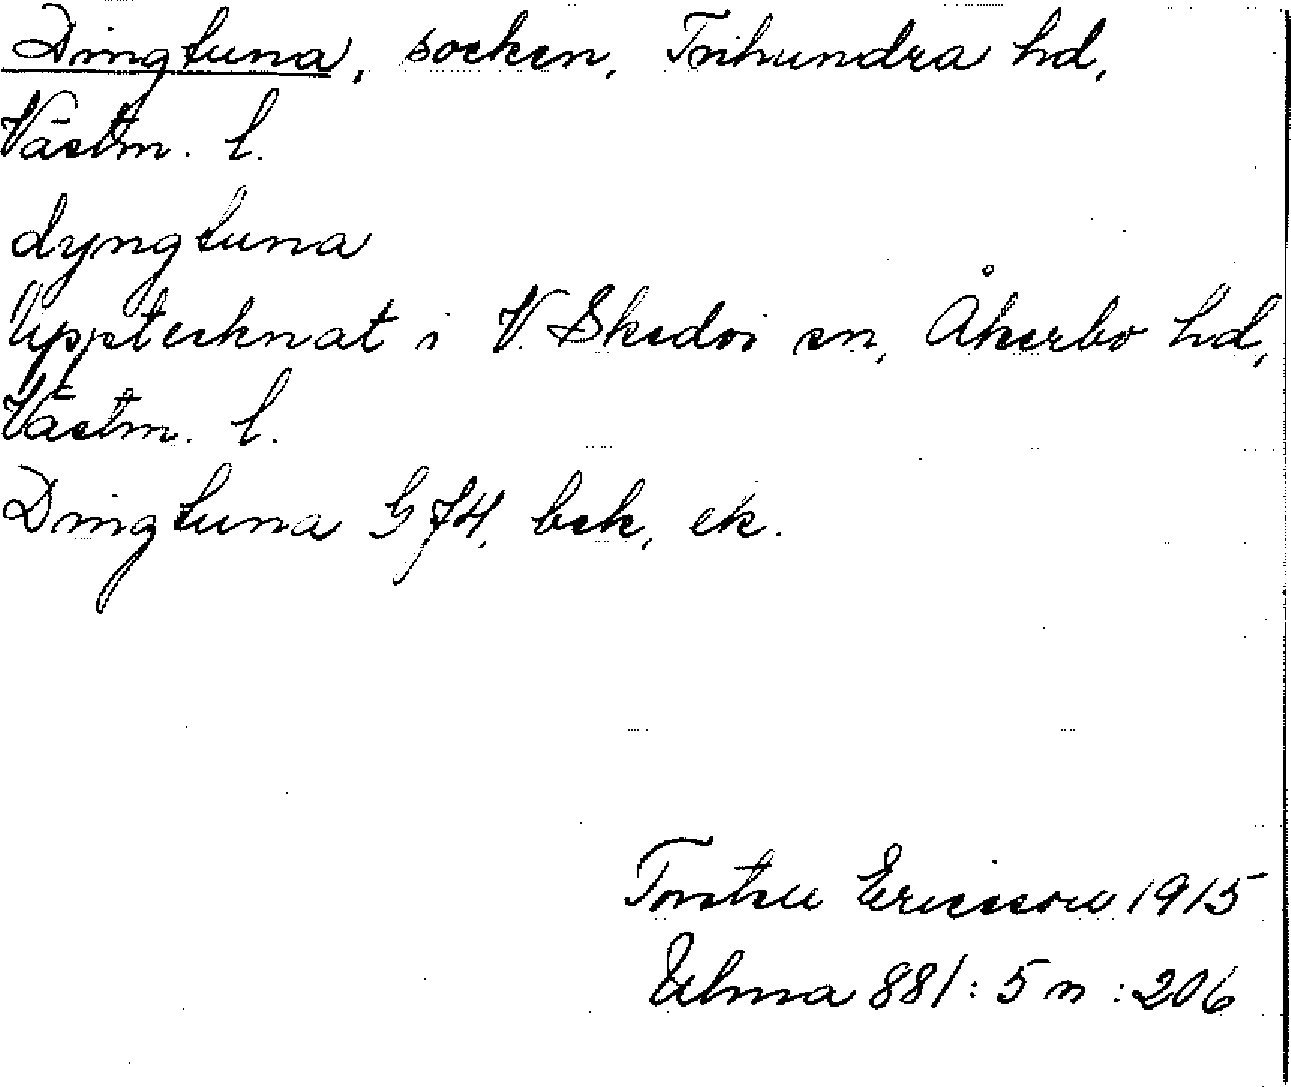 Dingtuna, socken, Trihundra hd,
Västm. l.
dyngtuna
Upptecknat i V. Skedvi sn, Åkerbo hd,
Västm. l.
Dingtuna G 74, bek, ek.
Torsten Ericsson 1915
Ulma 881:5 n :206